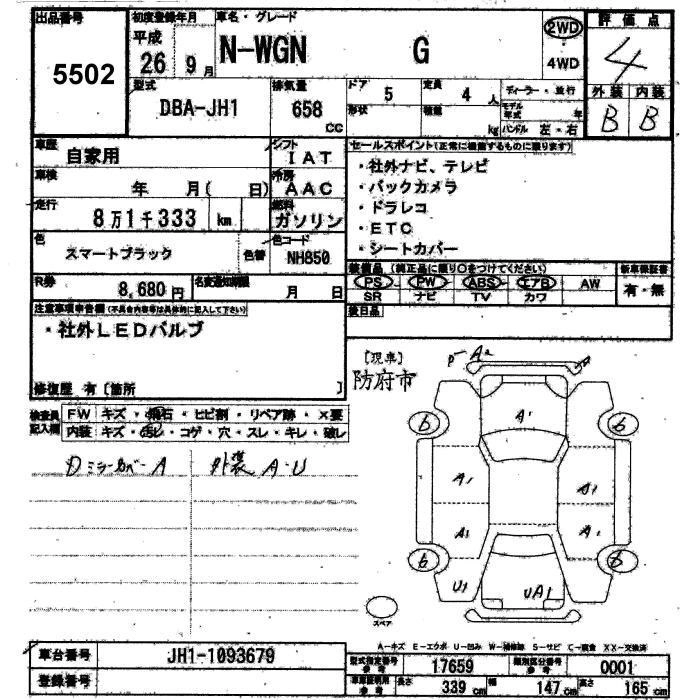 出品番号 初度登録年月 車名・グレード 2WD 評価点
5502 平成 26 9月 N-WGN G 4WD 4
型式 DBA-JH1 排気量 658 cc ドア 5 定員 4 人 ディーラー・並行 外装 内装
形状 積載 kg モデル年式 年 ハンドル 左・右 B B
車歴 自家用 シフト IAT セールスポイント(正常に機能するものに限ります)
車検 年 月( 日) 冷房 AAC ・社外ナビ、テレビ
走行 8万1千333 km 燃料 ガソリン ・バックカメラ
色 スマートブラック 色替 色コード NH850 ・ドラレコ
・ETC
・シートカバー
R券 8,680円 名変通知期限 月 日 装備品 (純正品に限り○をつけてください) 新車保証書
PS PW ABS エアB AW 有・無
SR ナビ TV カワ
注意事項申告欄(不具合内容等は具体的に記入して下さい) 後日品
・社外LEDバルブ
[現車]
防府市
修復歴 有 [箇所 ]
検査員記入欄 FW キズ・飛石・ヒビ割・リペア跡・×要
内装 キズ・汚レ・コゲ・穴・スレ・キレ・破レ
DミラーカバーA 外装 A・U
A2
A1
6 6
A1 A1
A1 A1
6 6
U1 UA1
スペア
A-キズ E-エクボ U-凹み W-補修跡 S-サビ C-腐食 XX-交換済
車台番号 JH1-1093679 型式指定番号 参考 17659 類別区分番号 参考 0001
登録番号 車検証明用 参考 長さ 339 cm 幅 147 cm 高さ 165 cm